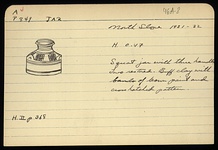 A
P 541 JAR
North Slope 1931-32
H. 0.47
Squat jar with three handles
two restored. Buff clay with
bands of brown paint and
cross hatched pattern.
H. II p. 068